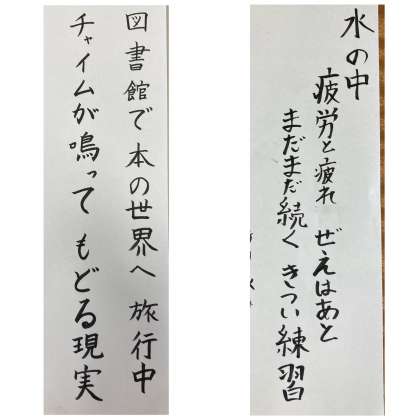 図書館で 本の世界へ 旅行中
チャイムが鳴って もどる現実
水の中
疲労と疲れ ぜえはあと
まだまだ続く きつい練習